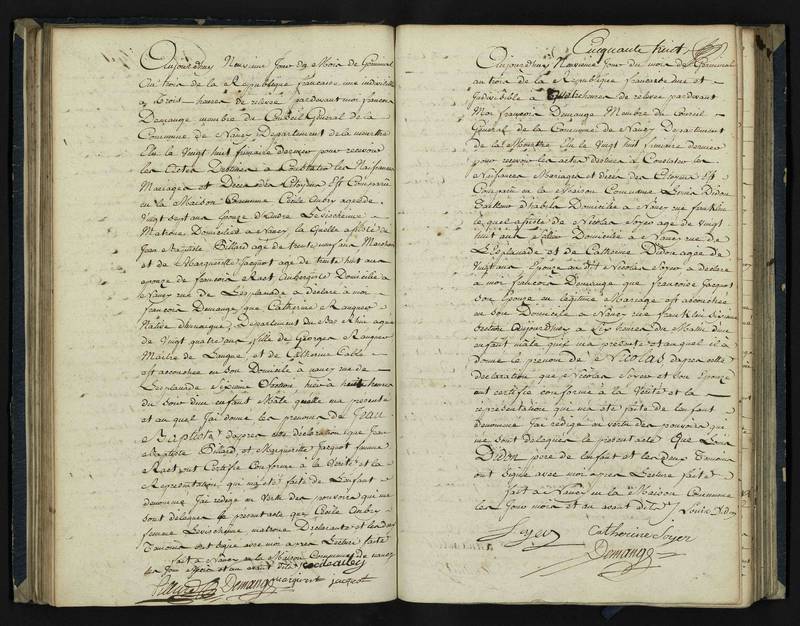 Aujourdhuy Neuvieme Jour du Mois de Germinal
An trois de la Republique francaise une indivisible
a trois heures de relevé pardevant moi francois
Demange membre du Conseil General de la
Commune de Nancy Departement de la meurthe
Elu le Vingt huit frimaire dernier pour recevoir
les Actes Destinés a Constater les Naissances
Mariages et Décès des Citoyens Est Comparue
en la Maison Commune Cécile Aubry agée de
Vingt sept ans Epouse d'André
Matrone Domiciliée a Nancy, la quelle assistée de
Jean Baptiste Billard agé de trente neuf ans Marchand
et de Marguerite Jacquot agée de trente huit ans
epouse de francois Ract Aubergiste Domiciliés a
Nancy rue de Lesplanade a déclaré à moi
francois Demange, que Catherine
Native Departement du Bas Rhin agée
de Vingt quatre ans, fille de Georges
Maitre de Langue, et de Catherine
est accouchée en Son Domicile a nancy rue de
Lesplanade Sixieme Section, hier à huit heures
du Soir d'un enfant Mâle quelle ma presenté
et au quel Jai donné les prenoms de Jean
Baptiste dapres cette déclaration que Jean
Baptiste Billard et Marguerite Jacquot femme
Ract ont Certifié Conforme à la Verité et la
Representation qui ma été faite de Lenfant
denommé Jai redigé en Vertu des pouvoirs qui me
Sont délégués le present acte que Cécile Aubry
femme matrone Déclarante et les deux
Temoins ont Signé avec moi après Lecture faite
fait a Nancy en la Maison Commune de nancy
les Jour mois et an avant dits Cecile aubry
Demange marguerit jacqot
Cinquante huit
Aujourdhuy Neuvieme Jour du mois de Germinal
an trois de la Republique francaise une et
Indivisible à Quatre heures de relevee pardevant
Moi francois Demange Membre du Conseil
General de la Commune de Nancy Departement
de la Meurthe Elu le Vingt huit frimaire dernier
pour recevoir les actes destinés a Constater les
Naissances Mariages et décès des Citoyens Est
Comparu en la Maison Commune Louis Didon
Tailleur d'habits Domicilié a Nancy rue franklin
le quel assisté de Nicolas Soyer agé de Vingt
huit ans Domicilié a Nancy rue de
LEsplanade et de Catherine Didon agée de
Vingt ans Epouse au dit Nicolas Soyer a declaré
a moi francois Demange que francoise Jacquot
Son Epouse en Légitime Mariage est accouchée
en Son Domicile a Nancy rue franklin Sixieme
Section aujourdhuy a Six heures du Matin dun
enfant mâle quil ma presenté et auquel il a
donné le prenom de Nicolas dapres cette
déclaration que Nicolas Soyer et Son Epouse
ont certifié conforme à la Verité et la
representation qui ma été faite de Lenfant
denommé Jai redigé en vertu des pouvoirs qui
me Sont délégués le present acte que Louis
Didon père de Lenfant et les deux Temoins
ont Signé avec moi apres Lecture faite
fait a Nancy en la Maison Commune
les Jour mois et an avant dits Louis Didon
Soyer Catherine Soyer
Demange